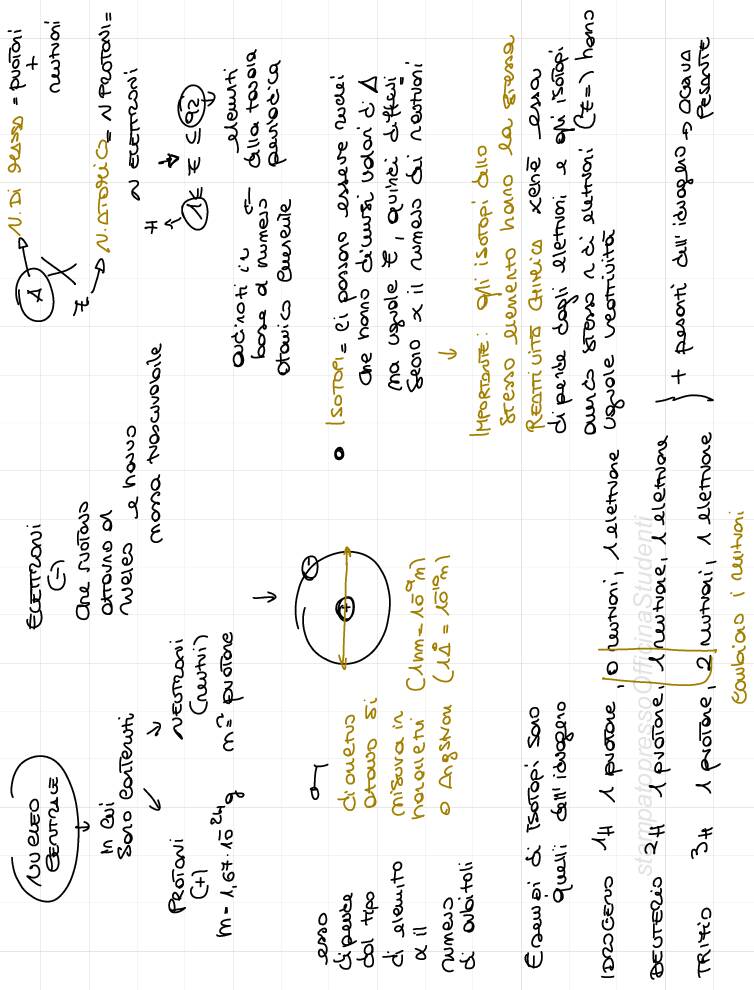 NUCLEO
CENTRALE
In cui
sono contenuti
PROTONI
(+)
m = 1,67·10⁻²⁴ g
NEUTRONI
(neutri)
m = protone
ELETTRONI
(-)
che ruotano
attorno al
nucleo e hanno
massa trascurabile
A → N. DI MASSA = protoni
+
neutroni
X
Z → N. ATOMICO = N PROTONI =
N ELETTRONI
H
1 ≤ Z ≤ 92
elementi
della tavola
periodica
ordinati in
base al numero
atomico crescente
esso
dipende
dal tipo
di elemento
x il
numero
di orbitali
diametro
atomo si
misura in
nanometri (1nm = 10⁻⁹m)
o Angstrom (1Å = 10⁻¹⁰m)
+
-
ISOTOPI = Ci possono essere nuclei
che hanno diversi valori di A
ma uguale Z, quindi differi
scono x il numero dei neutroni
IMPORTANTE: gli isotopi dello
stesso elemento hanno la stessa
REATTIVITÀ CHIMICA xchè essa
dipende dagli elettroni e gli isotopi
avendo stesso n di elettroni (Z=) hanno
uguale reattività
Esempi di isotopi sono
quelli dell'idrogeno
IDROGENO 1H 1 protone, 0 neutroni, 1 elettrone
DEUTERIO 2H 1 protone, 1 neutrone, 1 elettrone
TRIZIO 3H 1 protone, 2 neutroni, 1 elettrone
} + pesanti dell'idrogeno → ACQUA
PESANTE
Cambiano i neutroni
stampatopressoOfficinaStudenti